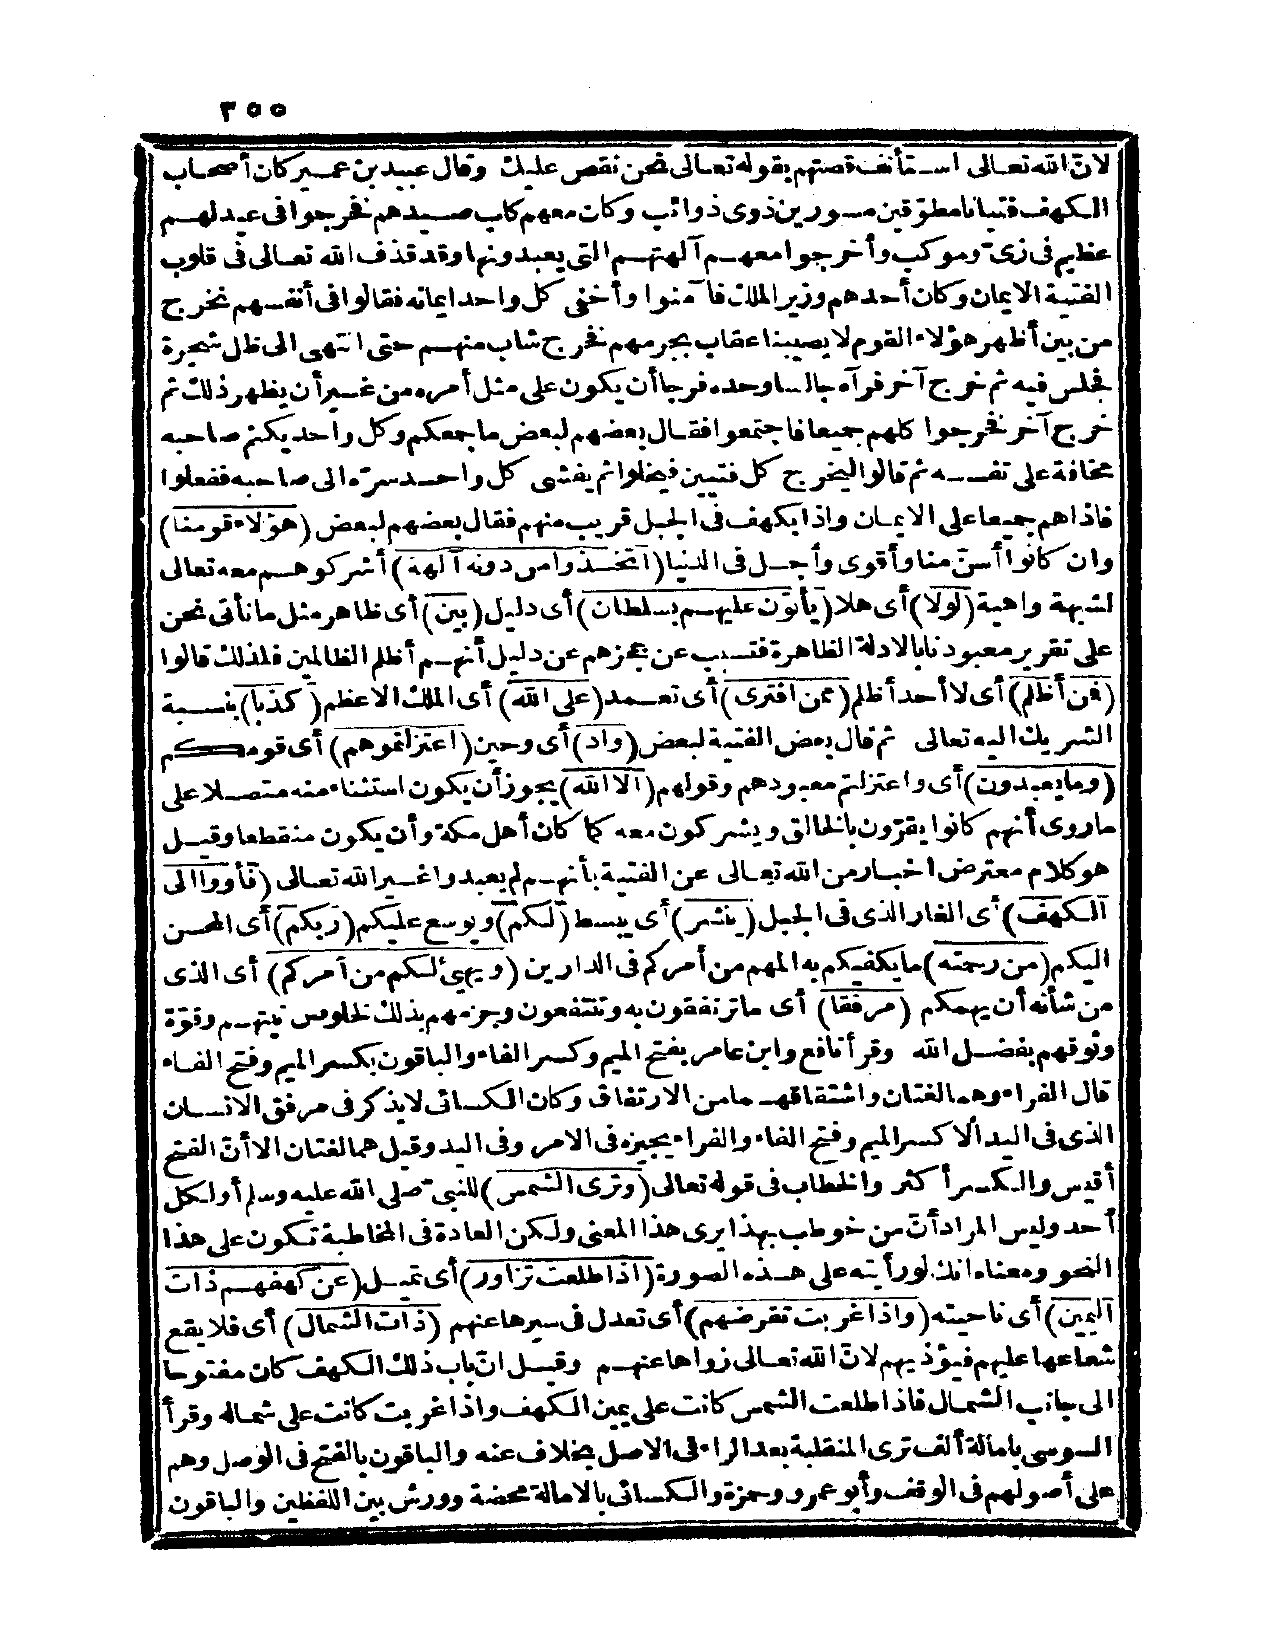 ٣٥٥
لانّ الله تعالى استأنف قصتهم بقوله تعالى نحن نقص عليك وقال عبيد بن عمير كان أصحاب
الكهف فتيانا مطوّقين مسورين ذوى ذوائب وكان معهم كلب صيدهم فخرجوا فى عيد لهم
عظيم فى زىّ وموكب وأخرجوا معهم آلهتهم التى يعبدونها وقد قذف الله تعالى فى قلوب
الفتية الايمان وكان أحدهم وزير الملك فآمنوا وأخفى كل واحد ايمانه فقالوا فى أنفسهم نخرج
من بين أظهر هؤلاء القوم لا يصيبنا عقاب بجرمهم فخرج شاب منهم حتى انتهى الى ظل شجرة
فجلس فيه ثم خرج آخر فرآه جالسا وحده فرجا أن يكون على مثل أمره من غير أن يظهر ذلك ثم
خرج آخر فخرجوا كلهم جميعا فاجتمعوا فقال بعضهم لبعض ما جمعكم وكل واحد يكتم صاحبه
مخافة على نفسه ثم قالوا ليخرج كل فتيين فيخلوا ثم يفشى كل واحد سرّه الى صاحبه ففعلوا
فاذاهم جميعا على الايمان واذا بكهف فى الجبل قريب منهم فقال بعضهم لبعض (هؤلاء قومنا)
وان كانوا أسنّ منا وأقوى وأجل فى الدنيا (اتخذوا من دونه آلهة) أشركوهم معه تعالى
لشبهة واهية (لولا) أى هلا (يأتون عليهم بسلطان) أى دليل (بين) أى ظاهر مثل ما نأتى نحن
على تقرير معبودنا بالادلة الظاهرة فتسبب عن عجزهم عن دليل أنهم أظلم الظالمين فلذلك قالوا
(فمن أظلم) أى لا أحد أظلم (ممن افترى) أى تعمد (على الله) أى الملك الاعظم (كذبا) بنسبة
الشريك اليه تعالى ثم قال بعض الفتية لبعض (واذ) أى وحين (اعتزلتموهم) أى قومكم
(وما يعبدون) أى واعتزلتم معبودهم وقولهم (الا الله) يجوز أن يكون استثناء منه متصلا على
ما روى أنهم كانوا يقرّون بالخالق ويشركون معه كما كان أهل مكة وأن يكون منقطعا وقيل
هو كلام معترض اخبار من الله تعالى عن الفتية بأنهم لم يعبدوا غير الله تعالى (فأووا الى
الكهف) أى الغار الذى فى الجبل (ينشر) أى يبسط (لكم) ويوسع عليكم (ربكم) أى المحسن
اليكم (من رحمته) ما يكفيكم به المهم من أمركم فى الدارين (ويهيئ لكم من أمركم) أى الذى
من شأنه أن يهمكم (مرفقا) أى ما ترتفقون به وتنتفعون وجزمهم بذلك لخلوص نيتهم وقوّة
وثوقهم بفضل الله وقرأ نافع وابن عامر بفتح الميم وكسر الفاء والباقون بكسر الميم وفتح الفاء
قال الفراء وهما لغتان واشتقاقهما من الارتفاق وكان الكسائى لا يذكر فى مرفق الانسان
الذى فى اليد الا كسر الميم وفتح الفاء والفراء يجيزه فى الامر وفى اليد وقيل هما لغتان الا أنّ الفتح
أقيس والكسر أكثر والخطاب فى قوله تعالى (وترى الشمس) للنبىّ صلى الله عليه وسلم أو لكل
أحد وليس المراد أنّ من خوطب بهذا يرى هذا المعنى ولكن العادة فى المخاطبة تكون على هذا
النحو ومعناه انك لو رأيته على هذه الصورة (اذا طلعت تزاور) أى تميل (عن كهفهم ذات
اليمين) أى ناحيته (واذا غربت تقرضهم) أى تعدل فى سيرها عنهم (ذات الشمال) أى فلا يقع
شعاعها عليهم فيؤذيهم لانّ الله تعالى زواها عنهم وقيل انّ باب ذلك الكهف كان مفتوحا
الى جانب الشمال فاذا طلعت الشمس كانت على يمين الكهف واذا غربت كانت على شماله وقرأ
السوسى بامالة ألف ترى المنقلبة بعد الراء فى الاصل بخلاف عنه والباقون بالفتح فى الوصل وهم
على أصولهم فى الوقف وأبو عمرو وحمزة والكسائى بالامالة محضة وورش بين اللفظين والباقون